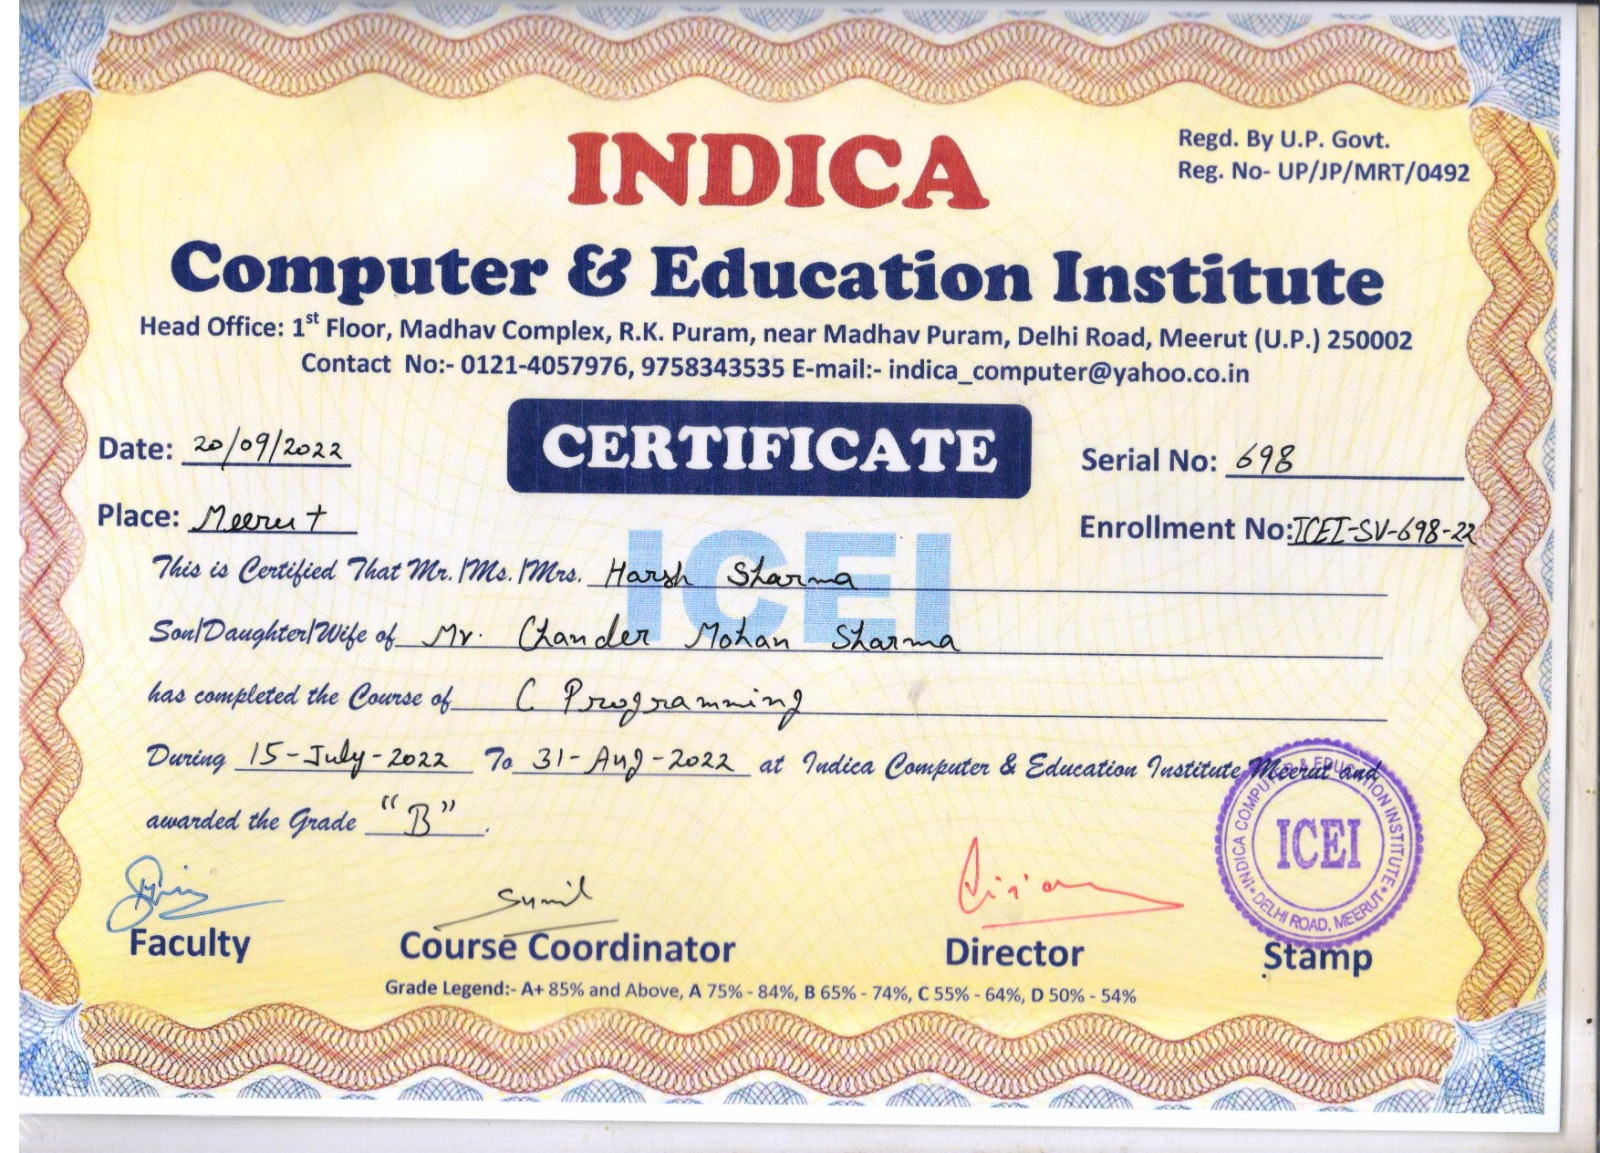 Regd. By U.P. Govt.
Reg. No- UP/JP/MRT/0492
INDICA
Computer & Education Institute
Head Office: 1st Floor, Madhav Complex, R.K. Puram, near Madhav Puram, Delhi Road, Meerut (U.P.) 250002
Contact No:- 0121-4057976, 9758343535 E-mail:- indica_computer@yahoo.co.in
CERTIFICATE
Date: 20/09/2022
Serial No: 698
Place: Meerut
Enrollment No: ICEI-SV-698-22
ICEI
This is Certified That Mr./Ms./Mrs. Harsh Sharma
Son/Daughter/Wife of Mr. Chander Mohan Sharma
has completed the Course of C Programming
During 15-July-2022 To 31-Aug-2022 at Indica Computer & Education Institute Meerut and
awarded the Grade "B".
INDICA COMPUTER & EDUCATION INSTITUTE
ICEI
DELHI ROAD, MEERUT
Sunil
Faculty
Course Coordinator
Director
Stamp
Grade Legend:- A+ 85% and Above, A 75% - 84%, B 65% - 74%, C 55% - 64%, D 50% - 54%